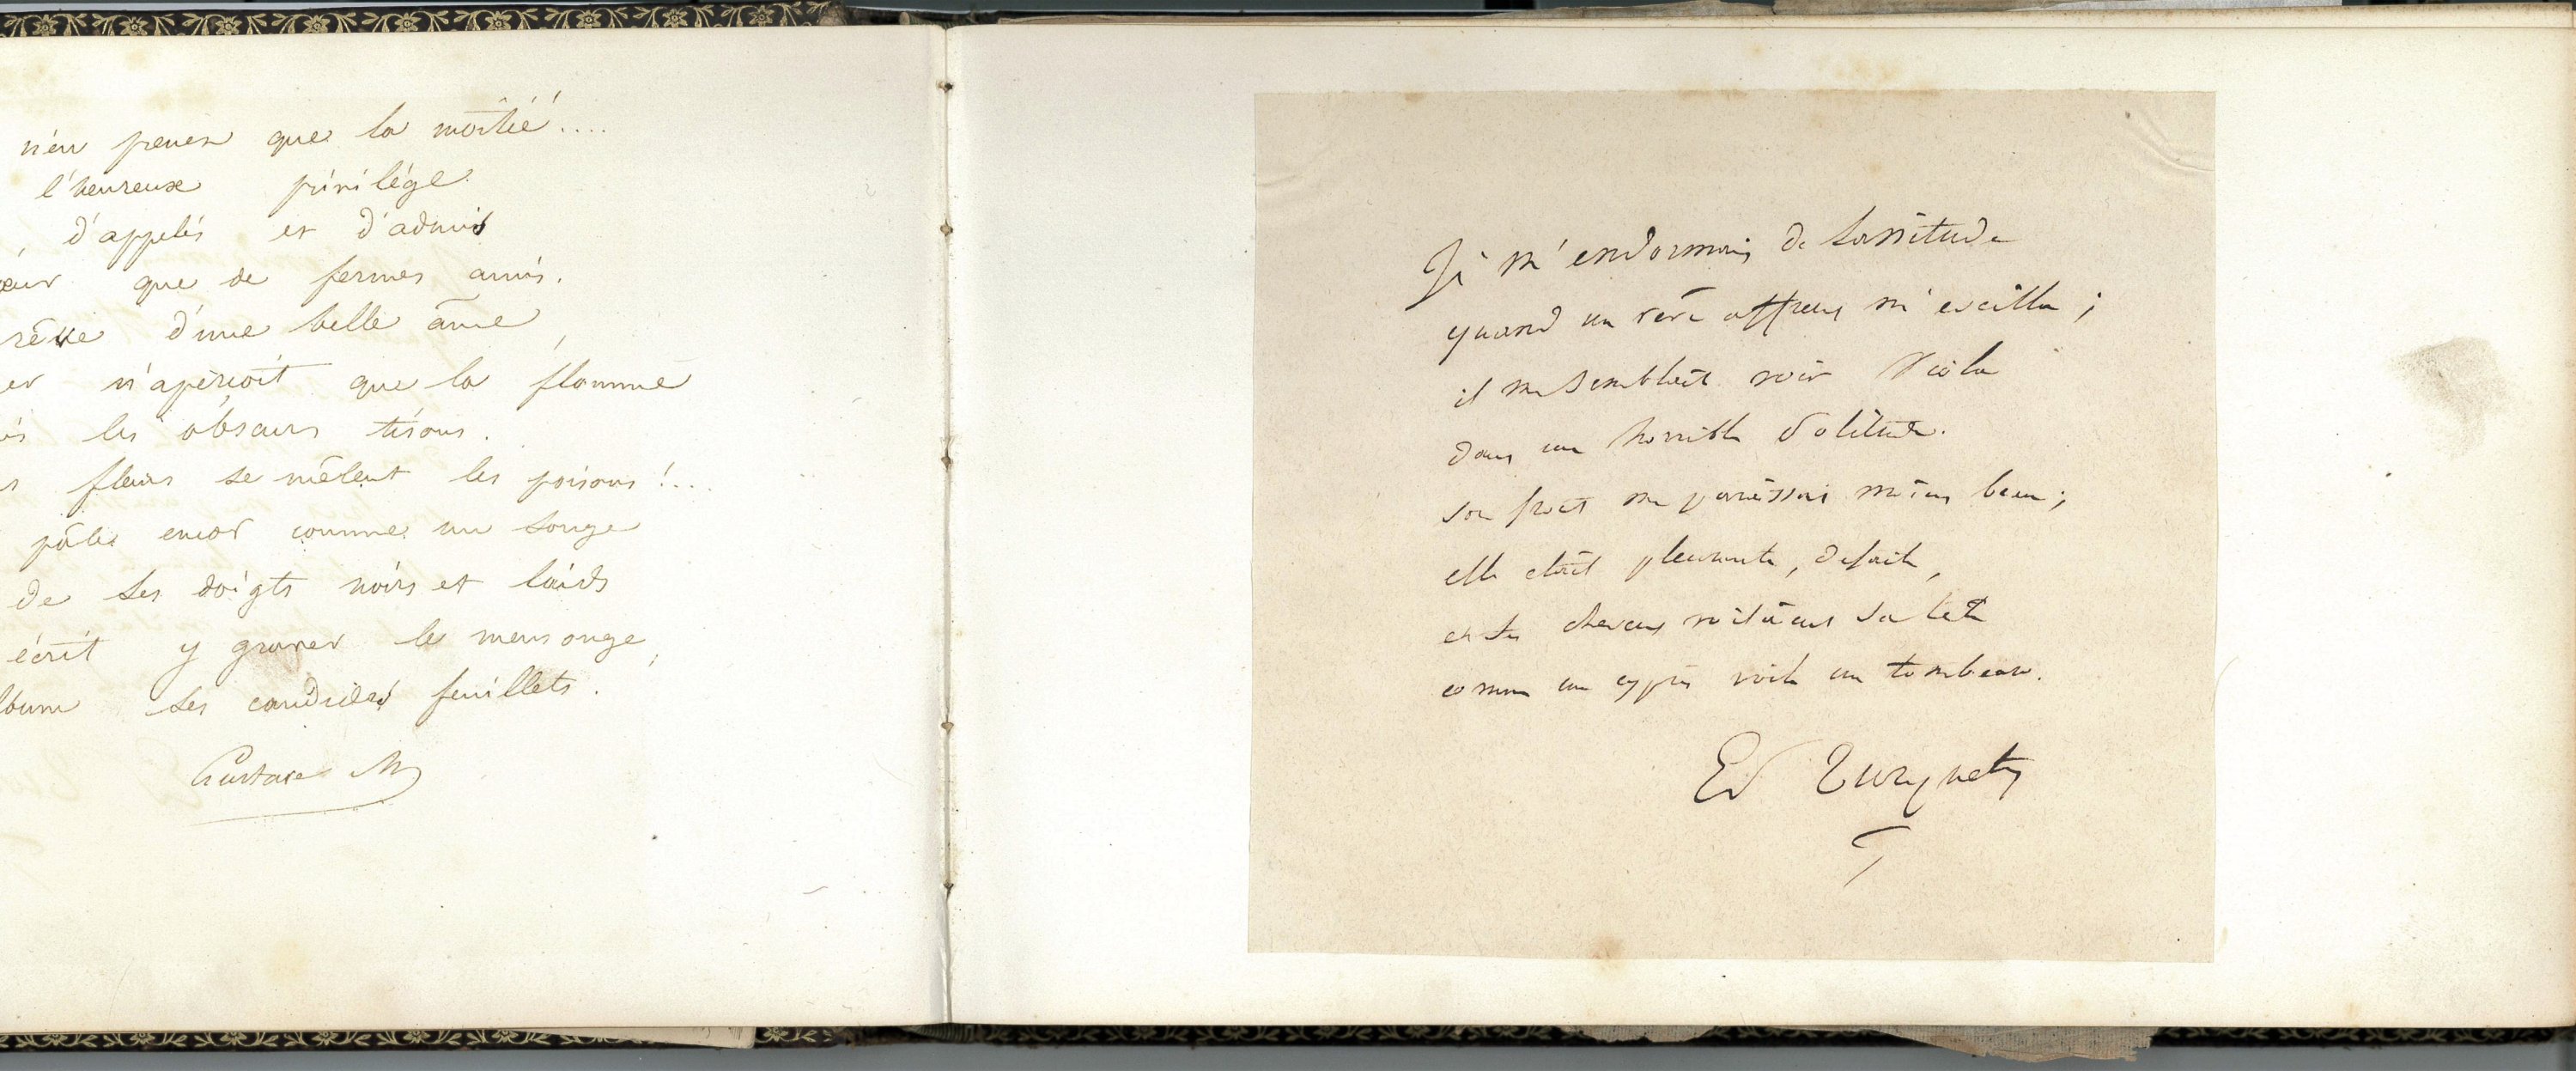 n'en prener que la moitié....
l'heureux privilége
, d'appelés et d'admis
œur que de fermes amis.
rêve d'une belle âme,
er n'aperçoit que la flamme
is les obscurs tisons.
s fleurs se mêlent les poisons!...
pâles encor comme un songe
de ses doigts noirs et laids
écrit y graver le mensonge,
lbum ses candides feuillets.
Gustave M
Je m'endormais de lassitude
quand un rêve affreux m'eveilla;
il me semblait voir Viola
dans une horrible solitude.
son front me paraissai moins beau;
elle etait pleurante, defaite,
et ses cheveux voilaient sa tete
comme un cyprès voile un tombeau.
Ed Turquety